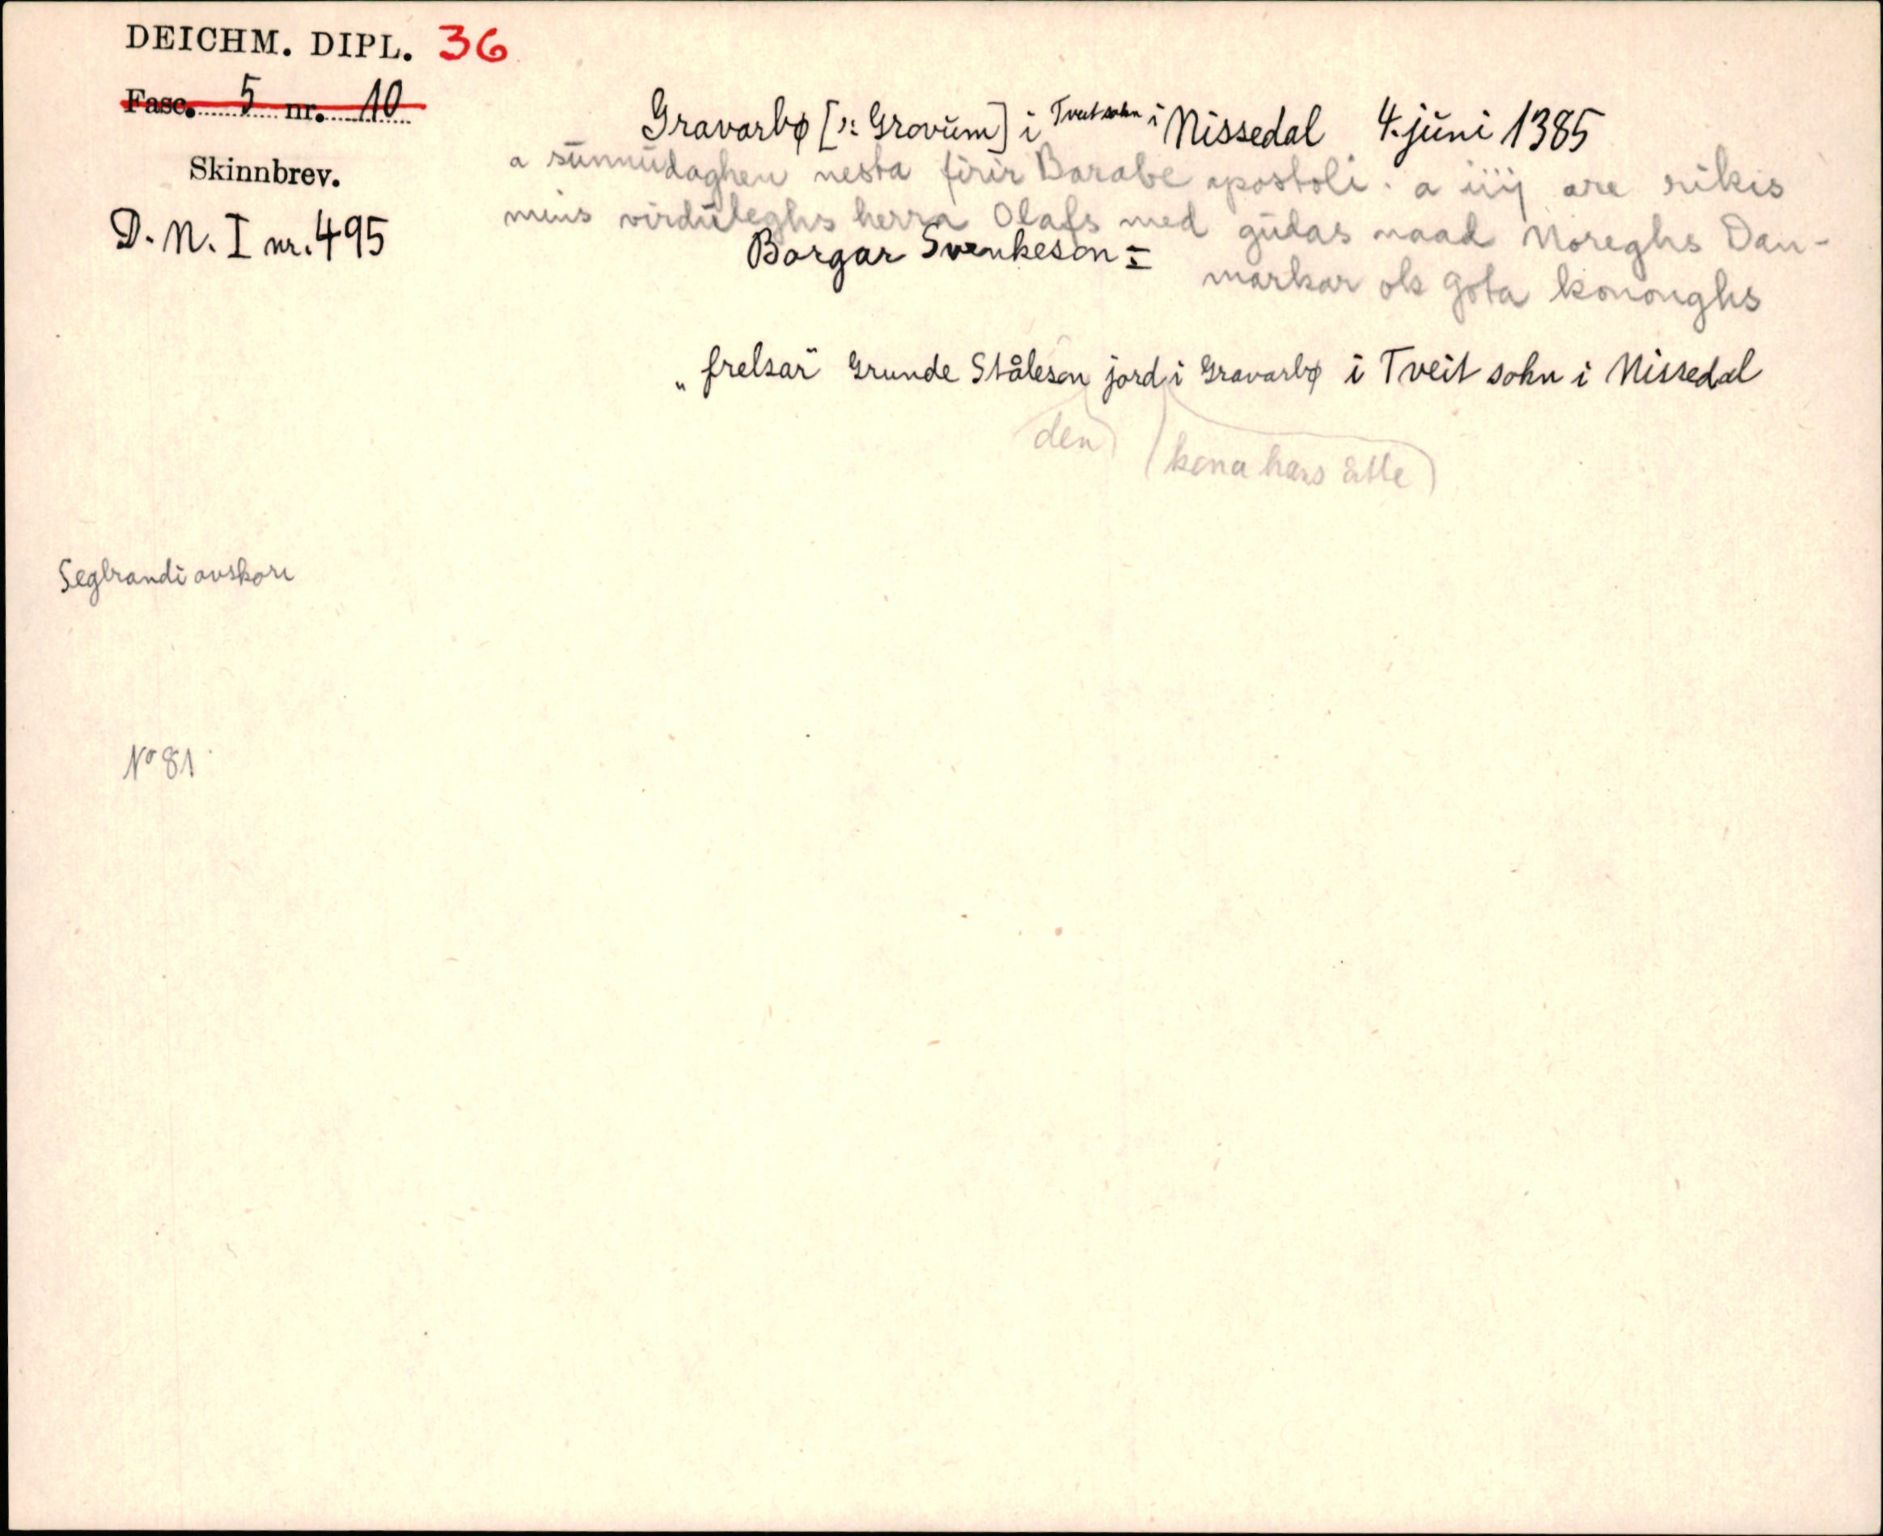 DEICHM. DIPL. 36
Fasc. 5 nr. 10
Skinnbrev.
D. N. I nr. 495
Gravarbø [ɔ: Grovum] i Tveit sokn i Nissedal 4. juni 1385
a sunnudaghen nesta firir Barabe apostoli. a iiij are rikis
mins virduleghs herra Olafs med gudas naad Noreghs Dan-
markar ok Gota kononghs
Borgar Svenkeson
„frelsar" Grunde Ståleson jord i Gravarbø i Tveit sokn i Nissedal
den
(kona hans åtte)
Seglrandi avskore
No 81